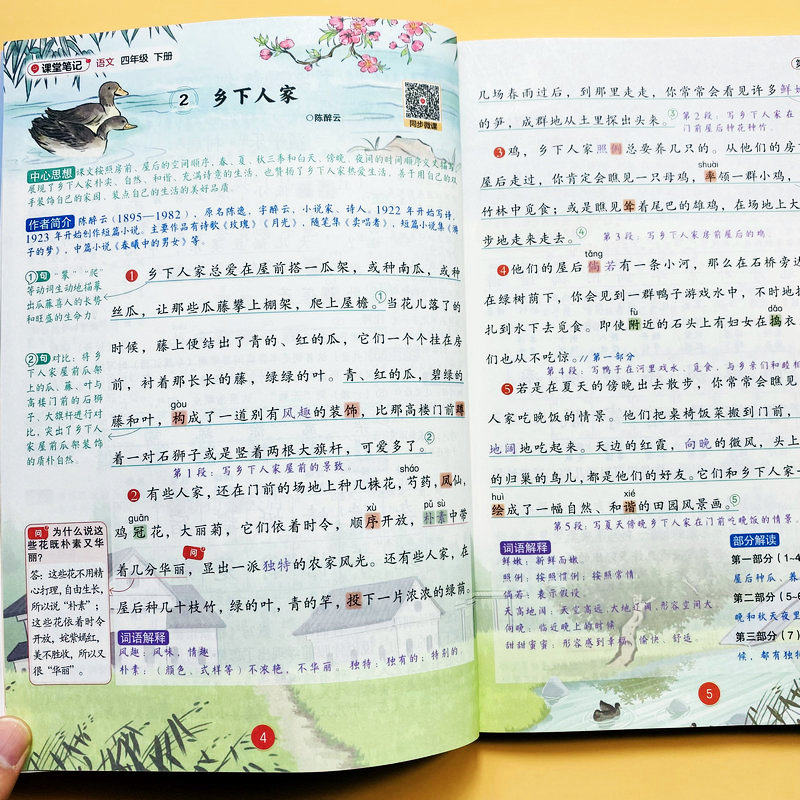 课堂笔记 语文 四年级 下册
2 乡下人家
◎陈醉云
同步微课
中心思想 课文按照房前、屋后的空间顺序，春、夏、秋三季和白天、傍晚、夜间的时间顺序交叉描写，
展现了乡下人家朴实、自然、和谐、充满诗意的生活，也赞扬了乡下人家热爱生活、善于用自己的双
手装饰自己的家园、装点自己的生活的美好品质。
作者简介 陈醉云（1895—1982），原名陈逸，字醉云，小说家、诗人。1922 年开始写诗，
1923 年开始创作短篇小说。主要作品有诗歌《玫瑰》《月光》，随笔集《卖唱者》，短篇小说集《游
子的梦》，中篇小说《春曦中的男女》等。
①句 “攀”“爬”
等动词生动地描摹
出瓜藤喜人的长势
和旺盛的生命力。
②句 对比：将乡
下人家屋前瓜架
上的瓜、藤、叶与
高楼门前的石狮
子、大旗杆进行对
比，突出了乡下人
家屋前瓜架装饰
的质朴自然。
❶ 乡下人家总爱在屋前搭一瓜架，或种南瓜，或种
丝瓜，让那些瓜藤攀上棚架，爬上屋檐。①当花儿落了的
时候，藤上便结出了青的、红的瓜，它们一个个挂在房
前，衬着那长长的藤，绿绿的叶。青、红的瓜，碧绿的
藤和叶，构成了一道别有风趣的装饰，比那高楼门前蹲
gòu
着一对石狮子或是竖着两根大旗杆，可爱多了。②
第1段：写乡下人家屋前的景致。
sháo
❷ 有些人家，还在门前的场地上种几株花，芍药，凤仙，
guān xù pǔ sù
鸡冠花，大丽菊，它们依着时令，顺序开放，朴素中带
问
着几分华丽，显出一派独特的农家风光。还有些人家，在
屋后种几十枝竹，绿的叶，青的竿，投下一片浓浓的绿荫。
问 为什么说这
些花既朴素又华
丽？
答：这些花不用精
心打理，自由生长，
所以说“朴素”；
这些花依着时令
开放，姹紫嫣红，
美不胜收，所以又
很“华丽”。
词语解释
风趣：风味，情趣
朴素：（颜色、式样等）不浓艳，不华丽。 独特：独有的；特别的
4
几场春雨过后，到那里走走，你常常会看见许多鲜
的笋，成群地从土里探出头来。③
第2段：写乡下人家在
门前屋后种花种竹。
❸ 鸡，乡下人家照例总要养几只的。从他们的房
shuài
屋走过，你肯定会瞧见一只母鸡，率领一群小鸡，
竹林中觅食；或是瞧见耸着尾巴的雄鸡，在场地上大
步地走来走去。④
第3段：写乡下人家房前屋后的鸡。
tǎng
❹ 他们的屋后倘若有一条小河，那么在石桥旁边
在绿树荫下，你会见到一群鸭子游戏水中，不时地把
fù dǎo
扎到水下去觅食。即使附近的石头上有妇女在捣衣
们也从不吃惊。//第一部分
第4段：写鸭子在河里戏水、觅食，与乡亲们和睦相
❺ 若是在夏天的傍晚出去散步，你常常会瞧见
人家吃晚饭的情景。他们把桌椅饭菜搬到门前，
地阔地吃起来。天边的红霞，向晚的微风，头上
的归巢的鸟儿，都是他们的好友。它们和乡下人家一
huì xié
绘成了一幅自然、和谐的田园风景画。⑤
第5段：写夏天傍晚乡下人家在门前吃晚饭的情景。
词语解释
鲜嫩：新鲜而嫩。
照例：按照惯例；按照常情
倘若：表示假设
天高地阔：天空高远，大地辽阔，形容空间大
向晚：临近晚上的时候
甜甜蜜蜜：形容感到幸福、愉快、舒适
部分解读
第一部分（1-4
屋后种瓜、养
第二部分（5-6
晚和秋天夜里
第三部分（7）
候，都有独特
5